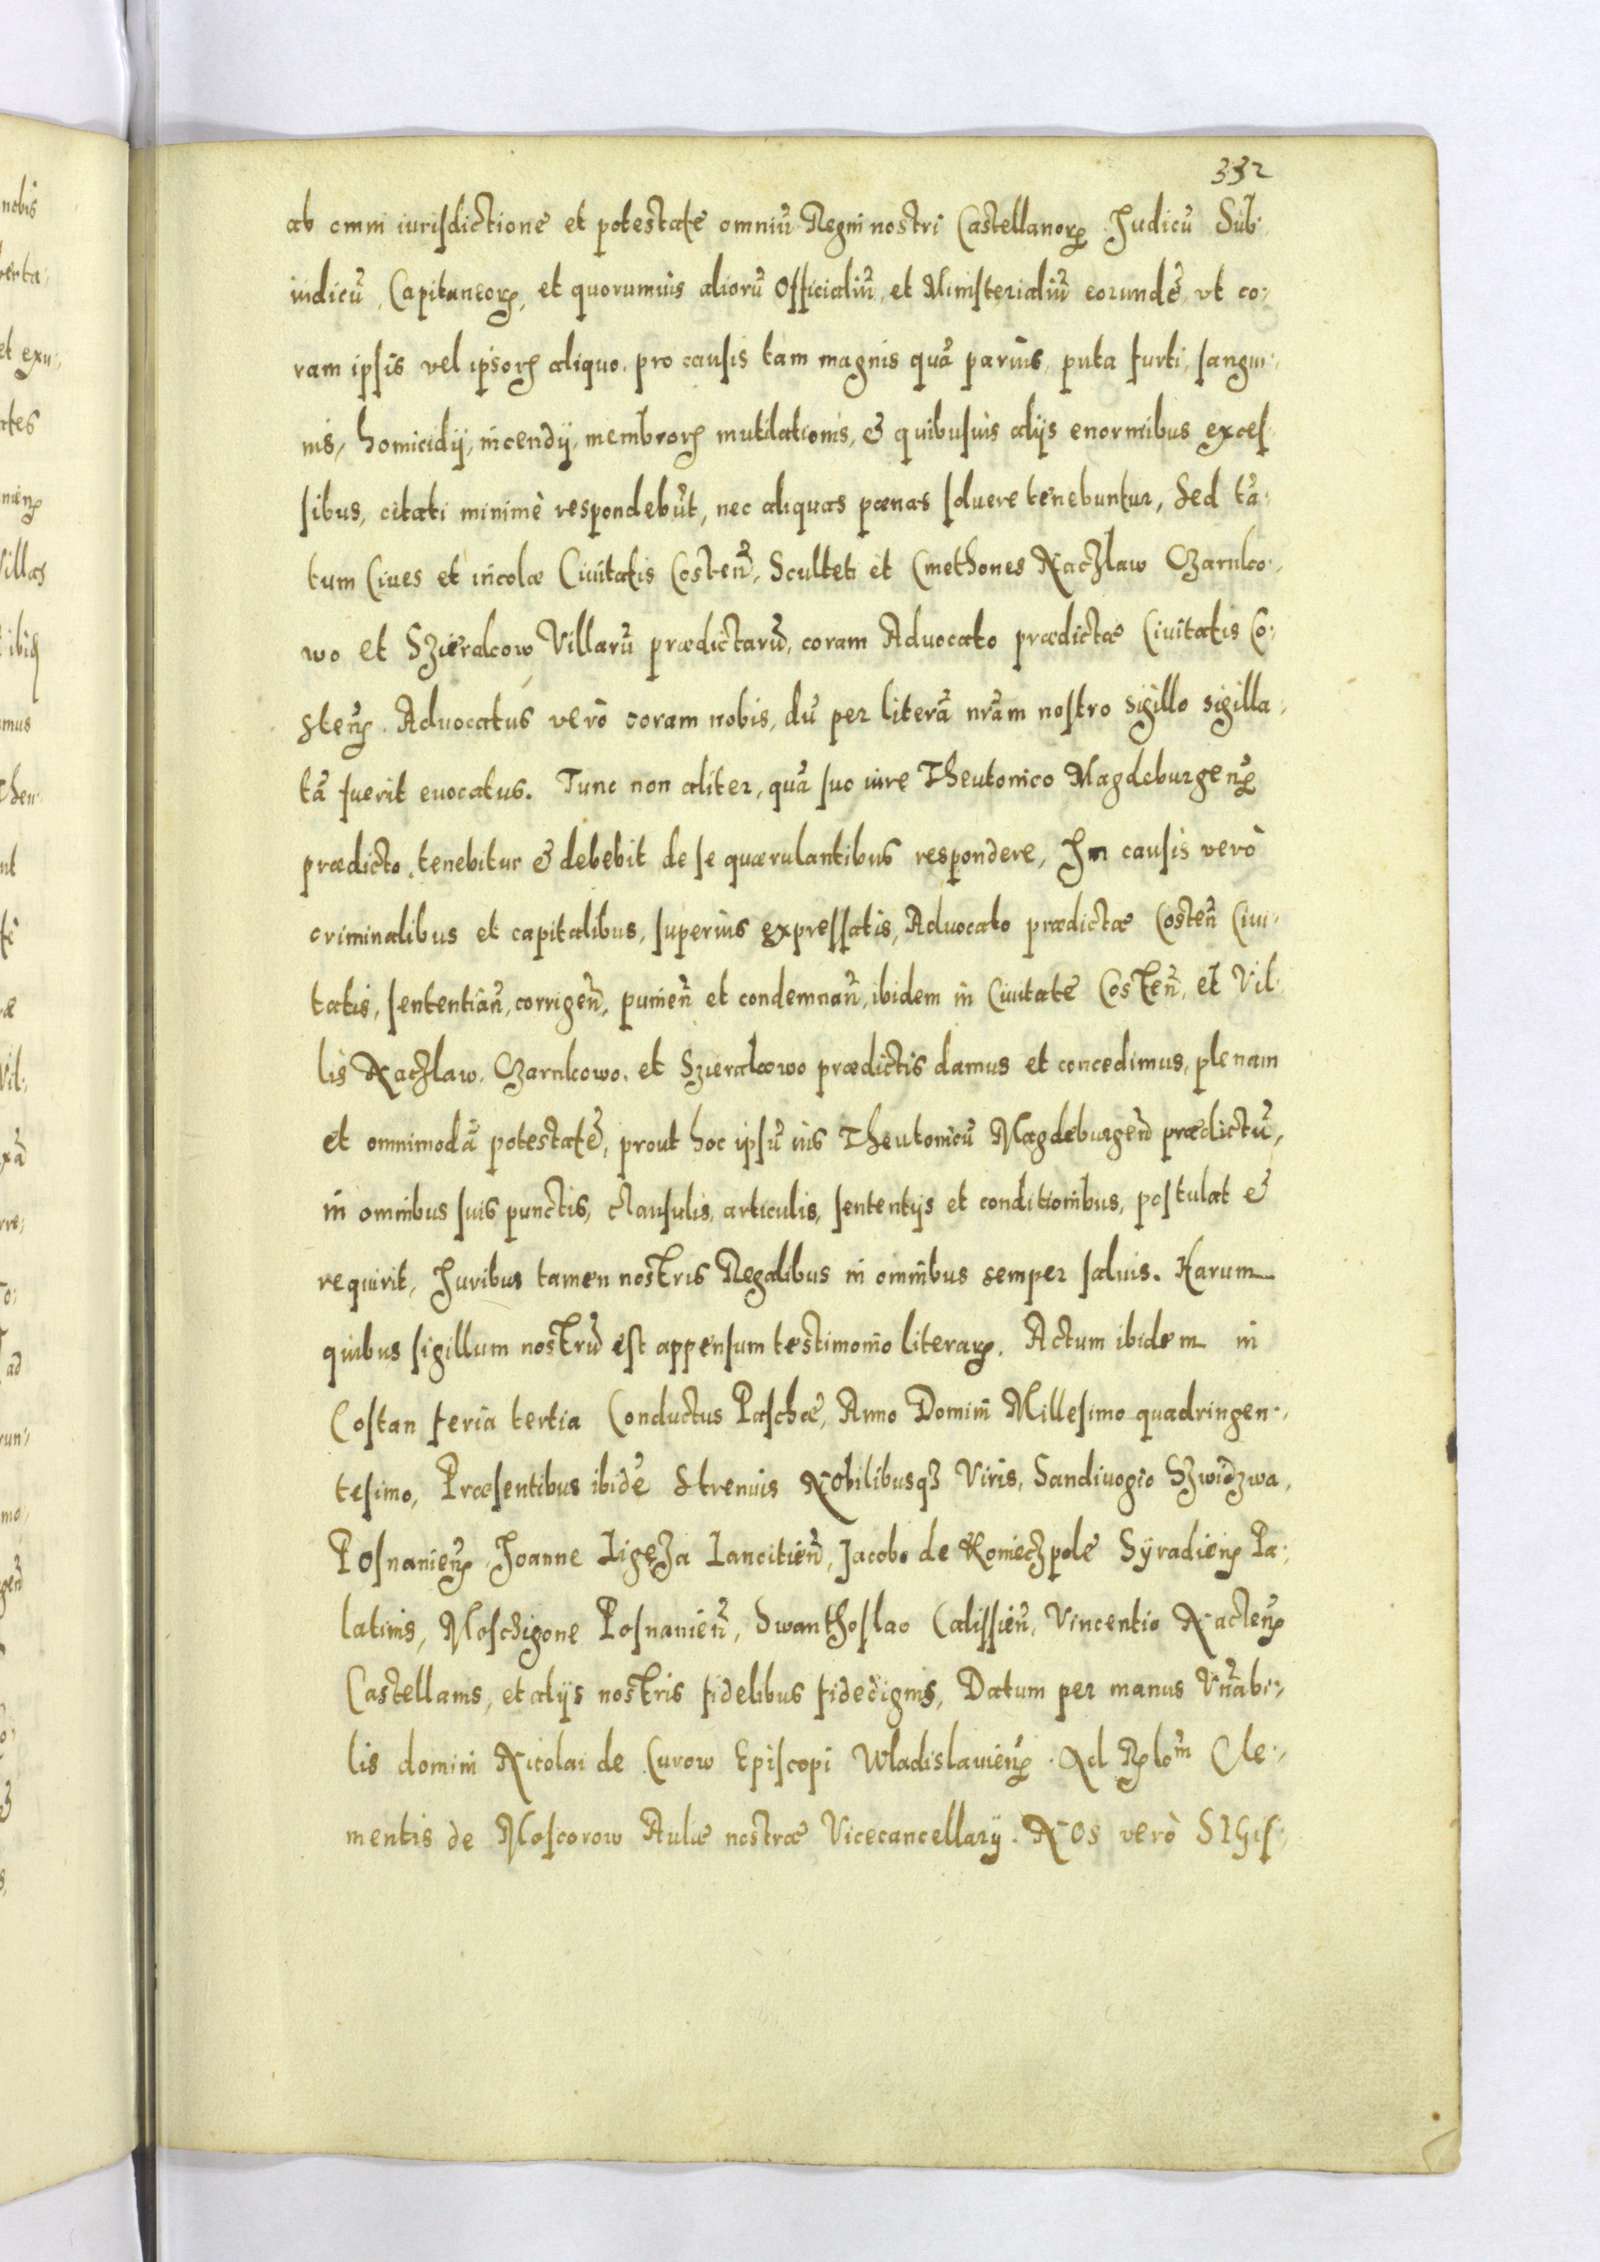 332
ab omni iurisdictione et potestate omniũ Regni nostri Castellanorꝝ Judicũ Sub
iudicũ, Capitaneorꝝ, et quorumuis aliorũ Officialiũ, et Ministerialiũ eorundẽ, vt co:
ram ipsis vel ipsorꝝ aliquo, pro causis tam magnis quã paruis, puta furti, sangui:
nis, homicidij, incendij, membrorꝝ mutilationis, & quibusuis alijs enormibus exces
sibus, citati minimè respondebũt, nec aliquas pœnas soluere tenebuntur, Sed tã:
tum Ciues et incolæ Ciuitatis Costeñ, Sculteti et Cmethones Naczlaw Czarnko:
wo et Szieralcow Villarũ prædictarũ, coram Aduocato prædictæ Ciuitatis Co:
steñ. Aduocatus verò coram nobis, dũ per literã nrãm nostro sigillo sigilla:
tã fuerit euocatus. Tunc non aliter, quã suo iure Theutonico Magdeburgeñ
prædicto, tenebitur & debebit de se quærulantibus respondere, In causis verò
criminalibus et capitalibus, superius expressatis, Aduocato prædictæ Costeñ Ciui:
tatis, sententiañ, corrigeñ, punieñ et condemnañ, ibidem in Ciuitate Costeñ, et Vil:
lis Naczlaw, Czarnkowo, et Szieralcowo prædictis damus et concedimus, plenam
et omnimodã potestatẽ, prout hoc ipsũ ius Theutonicũ Magdeburgeñ prædictũ,
in omnibus suis punctis, clausulis, articulis, sententijs et conditionibus, postulat &
requirit, Juribus tamen nostris Regalibus in omnibus semper saluis. Harum
quibus sigillum nostrũ est appensum testimonio literarꝝ. Actum ibidem in
Costan feria tertia Conductus Paschæ, Anno Domini Millesimo quadringen:
tesimo, Præsentibus ibidẽ Strenuis Nobilibusqꝫ Viris, Sandiuogio Szwidzwa,
Posnanieñ, Joanne Ligęza Lancitieñ, Jacobo de Konieczpole Syradieñ Pa:
latinis, Moschigone Posnanieñ, Swanthoslao Calissieñ, Vincentio Nacteñ
Castellanis, et alijs nostris fidelibus fidedignis, Datum per manus Vñabi:
lis domini Nicolai de Curow Episcopi Wladislauieñ. Ad Rꝑloᵐ Cle:
mentis de Moscorow Aulæ nostræ Vicecancellarij. NOS verò SIGIS: